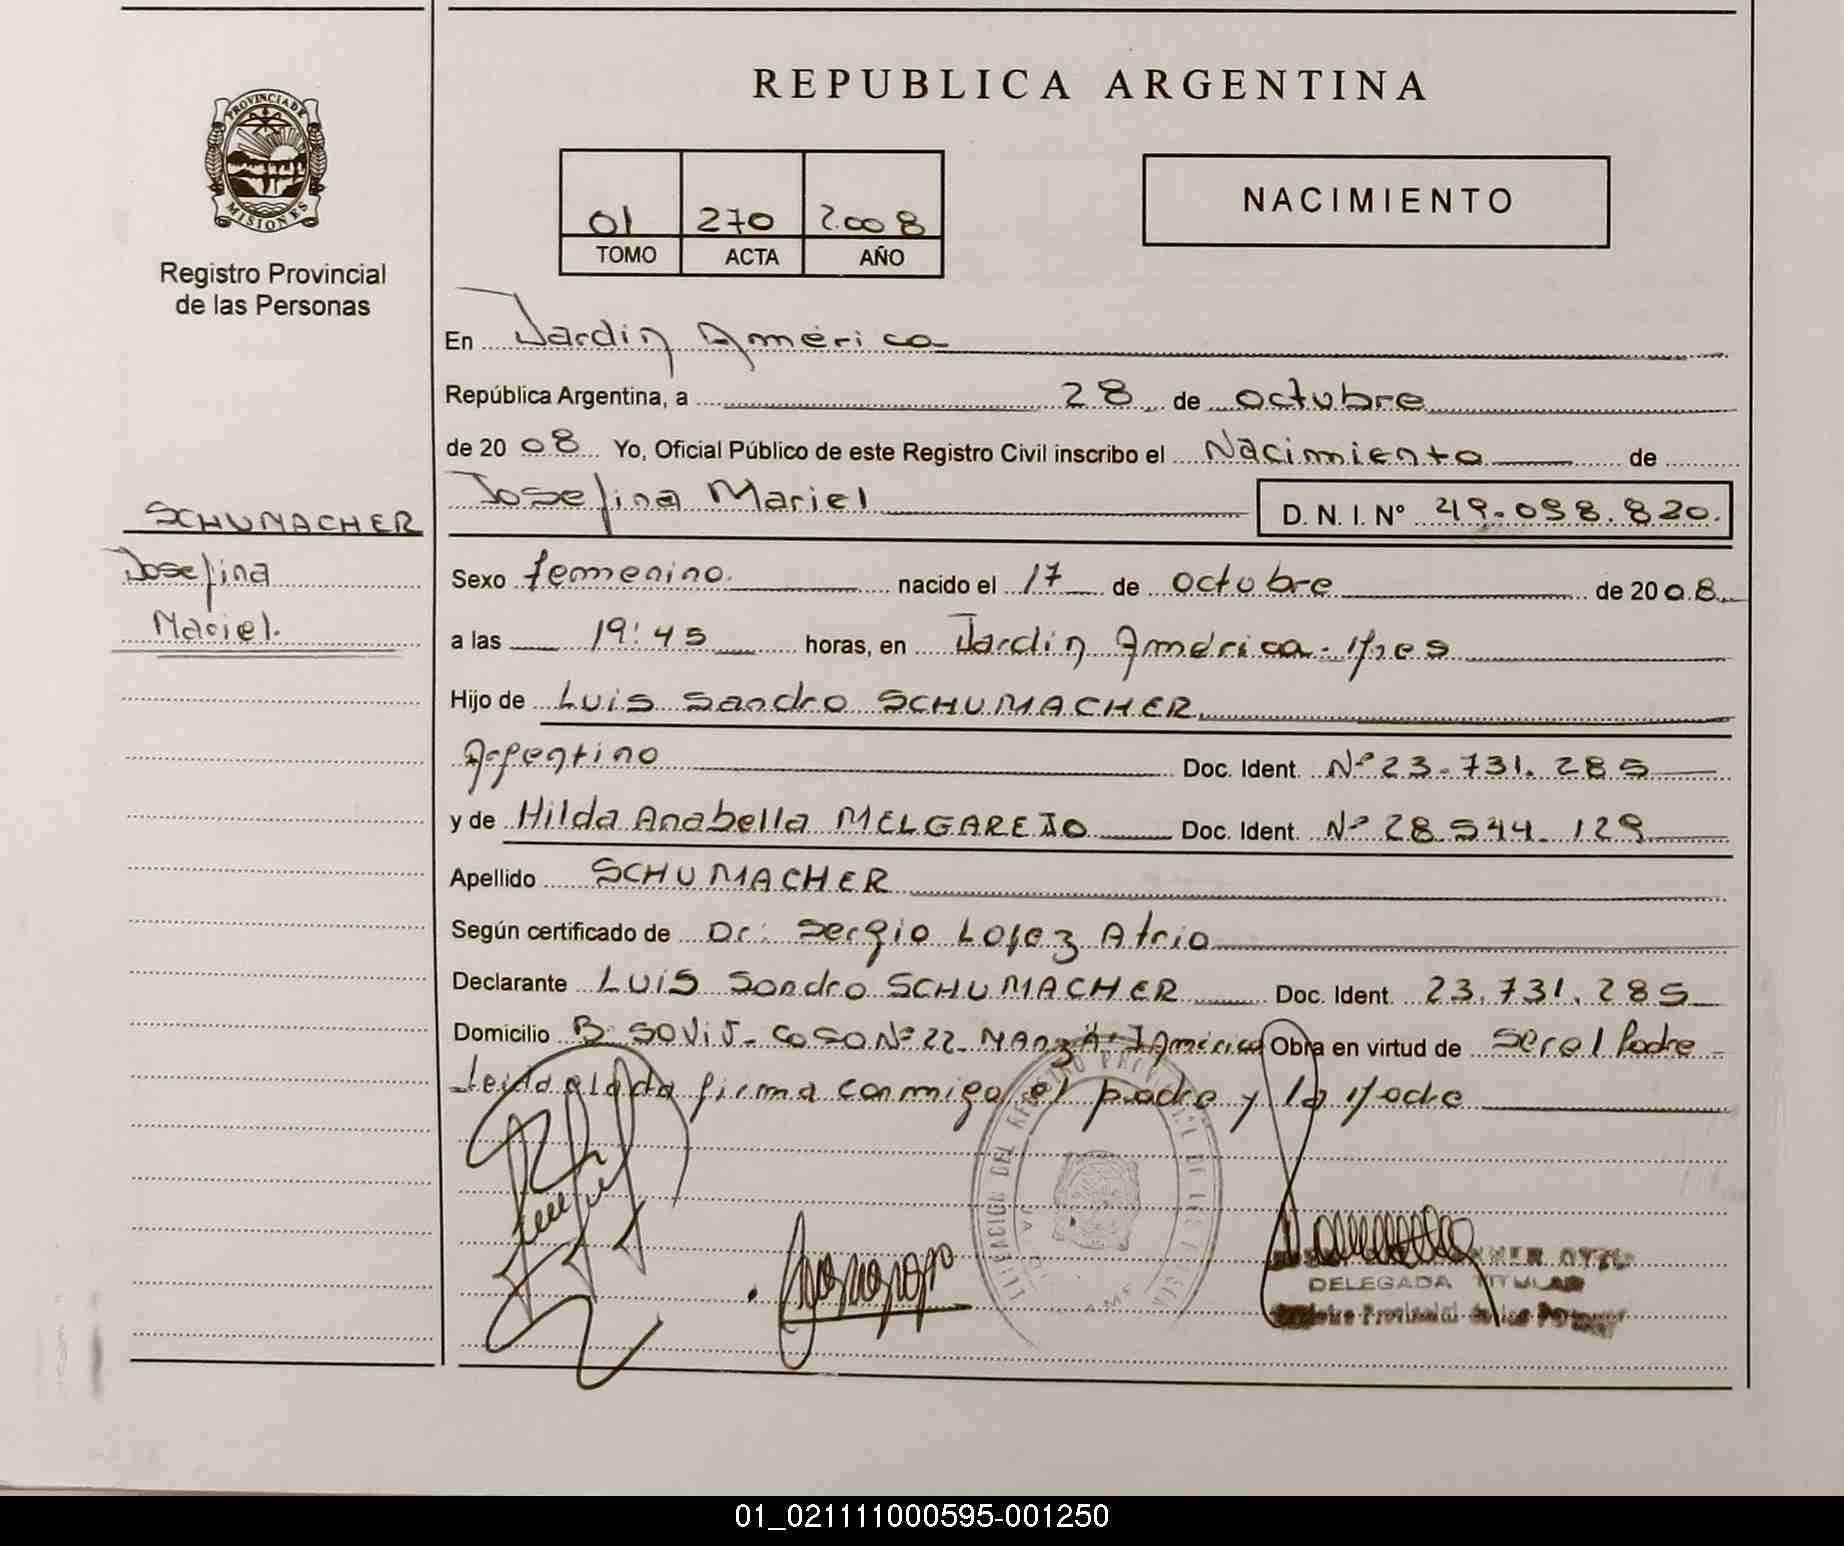 REPUBLICA ARGENTINA
PROVINCIA DE MISIONES
Registro Provincial
de las Personas
01 270 2008
TOMO ACTA AÑO
NACIMIENTO
En Jardin América
República Argentina, a 28 de octubre
de 2008 Yo, Oficial Público de este Registro Civil inscribo el Nacimiento de
Josefina Mariel D. N. I. N° 49.098.820.
SCHUMACHER
Josefina
Mariel.
Sexo femenino. nacido el 17 de octubre de 2008
a las 19:45 horas, en Jardin América
Hijo de Luis Sandro SCHUMACHER
Argentino Doc. Ident. Nº 23.731.285
y de Hilda Anabella MELGAREJO Doc. Ident. Nº 28.544.129
Apellido SCHUMACHER
Según certificado de Dr: Sergio Lopez Atrio
Declarante Luis Sandro SCHUMACHER Doc. Ident. 23.731.285
Domicilio Nº 22 América Obra en virtud de ser el Padre
Leida firma conmigo el padre y la Madre
DELEGADA TITULAR
Registro Provincial de las Personas
01_021111000595-001250